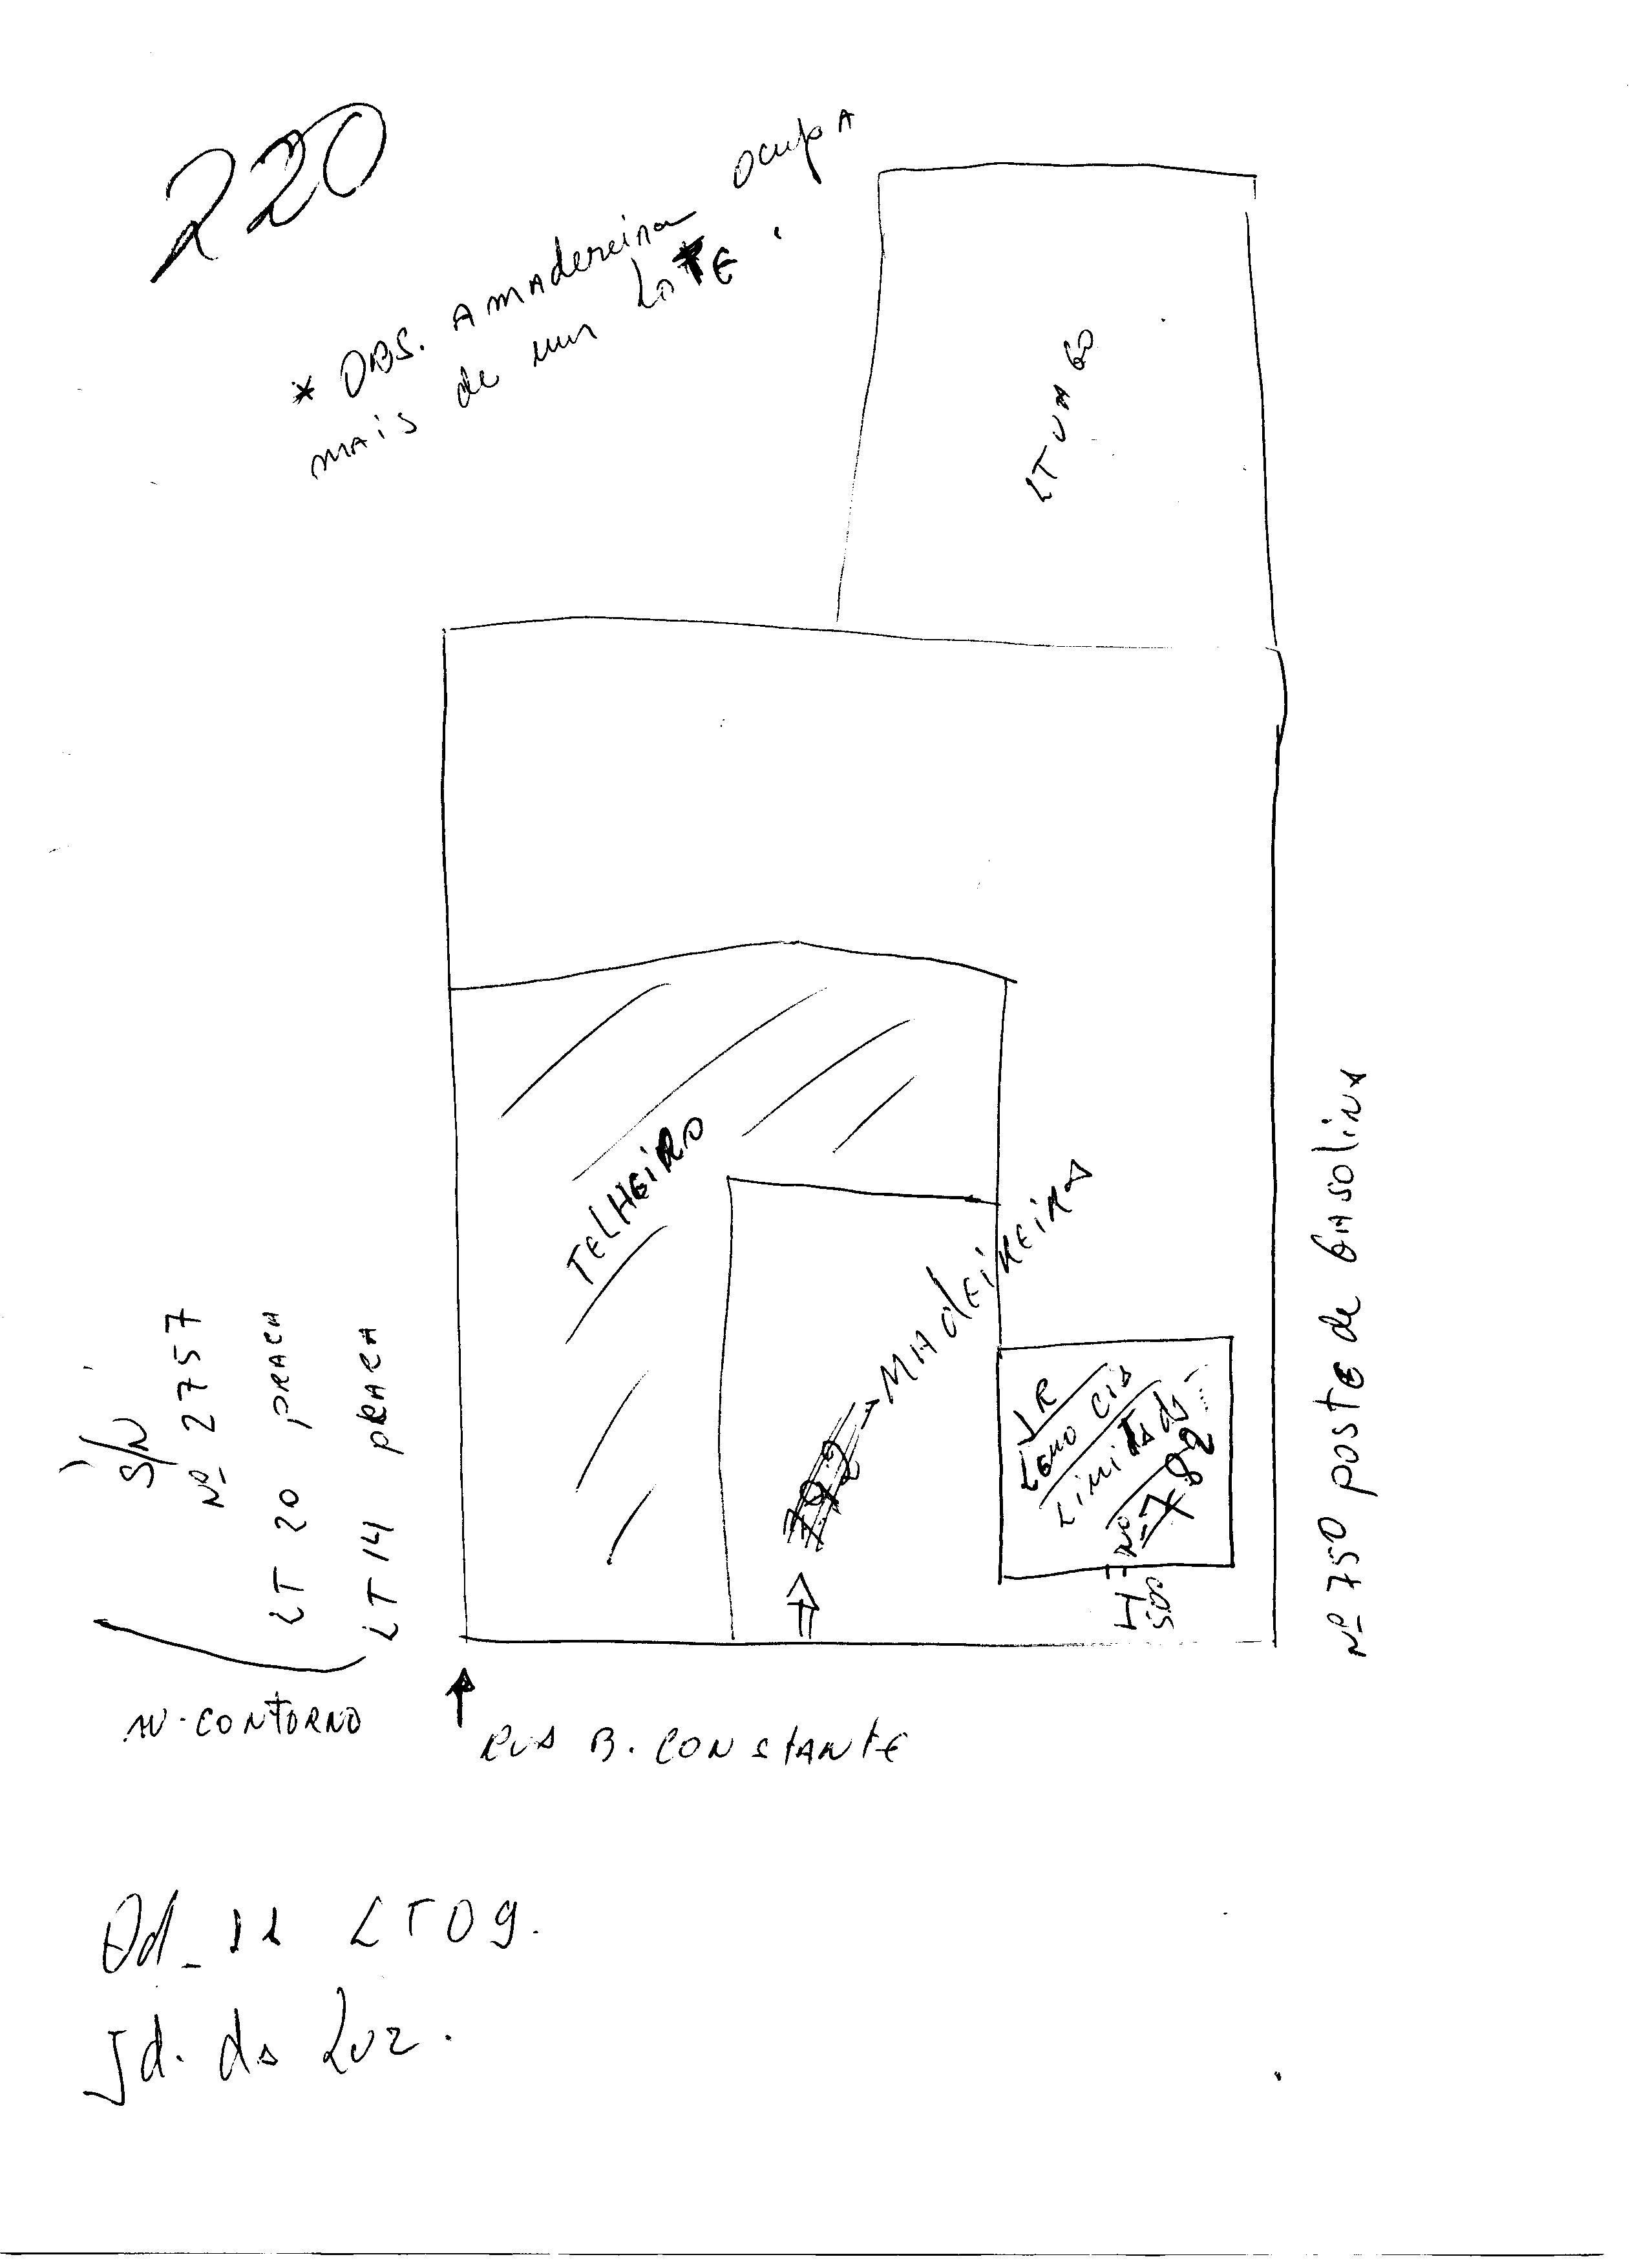 220
* OBS. A madereira ocupA
mais de um LOTE.
LT VAGO
TELHEIRO
MAdEiREiRA
792
JR
Limitada
Nº 782
Nº 750 posto de GASOLINA
S/N
Nº 2757
LT 20 PRAÇA
LT 14 PRAÇA
AV. CONTORNO
RUA B. CONSTANTE
Qd_ 11 LT 09.
Jd. da Luz.